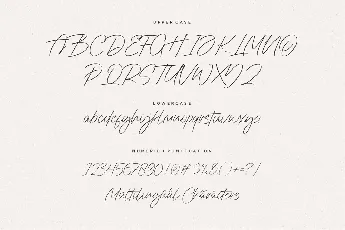 UPPERCASE
ABCDEFGHIJKLMNO
PQRSTUVWXYZ
LOWERCASE
abcdefghijklmnopqrstuvwxyz
NUMERIC PUNCTUATION
1234567890
Multilingual Characters